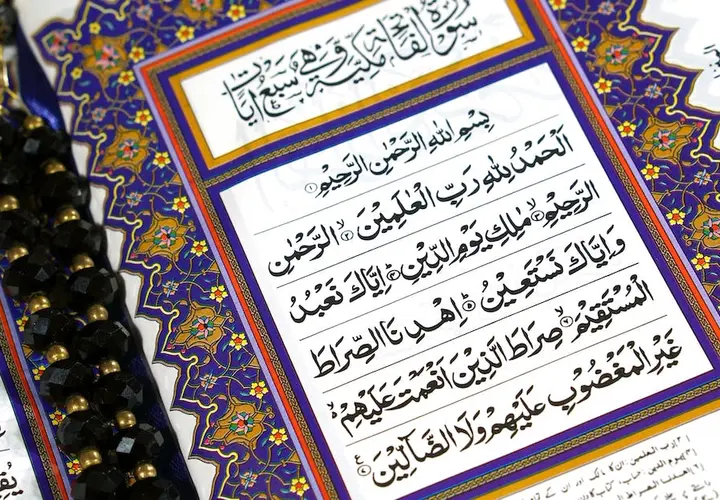 سورة الفاتحة مكية وهي سبع آيات
بِسْمِ اللهِ الرَّحْمٰنِ الرَّحِيْمِ ۝۱
اَلْحَمْدُ لِلّٰهِ رَبِّ الْعٰلَمِيْنَ ۝۲ الرَّحْمٰنِ
الرَّحِيْمِ ۝۳ مٰلِكِ يَوْمِ الدِّيْنِ ۝۴ اِيَّاكَ نَعْبُدُ
وَاِيَّاكَ نَسْتَعِيْنُ ۝۵ اِهْدِنَا الصِّرَاطَ
الْمُسْتَقِيْمَ ۝۶ صِرَاطَ الَّذِيْنَ اَنْعَمْتَ عَلَيْهِمْ
غَيْرِ الْمَغْضُوْبِ عَلَيْهِمْ وَلَا الضَّآلِّيْنَ